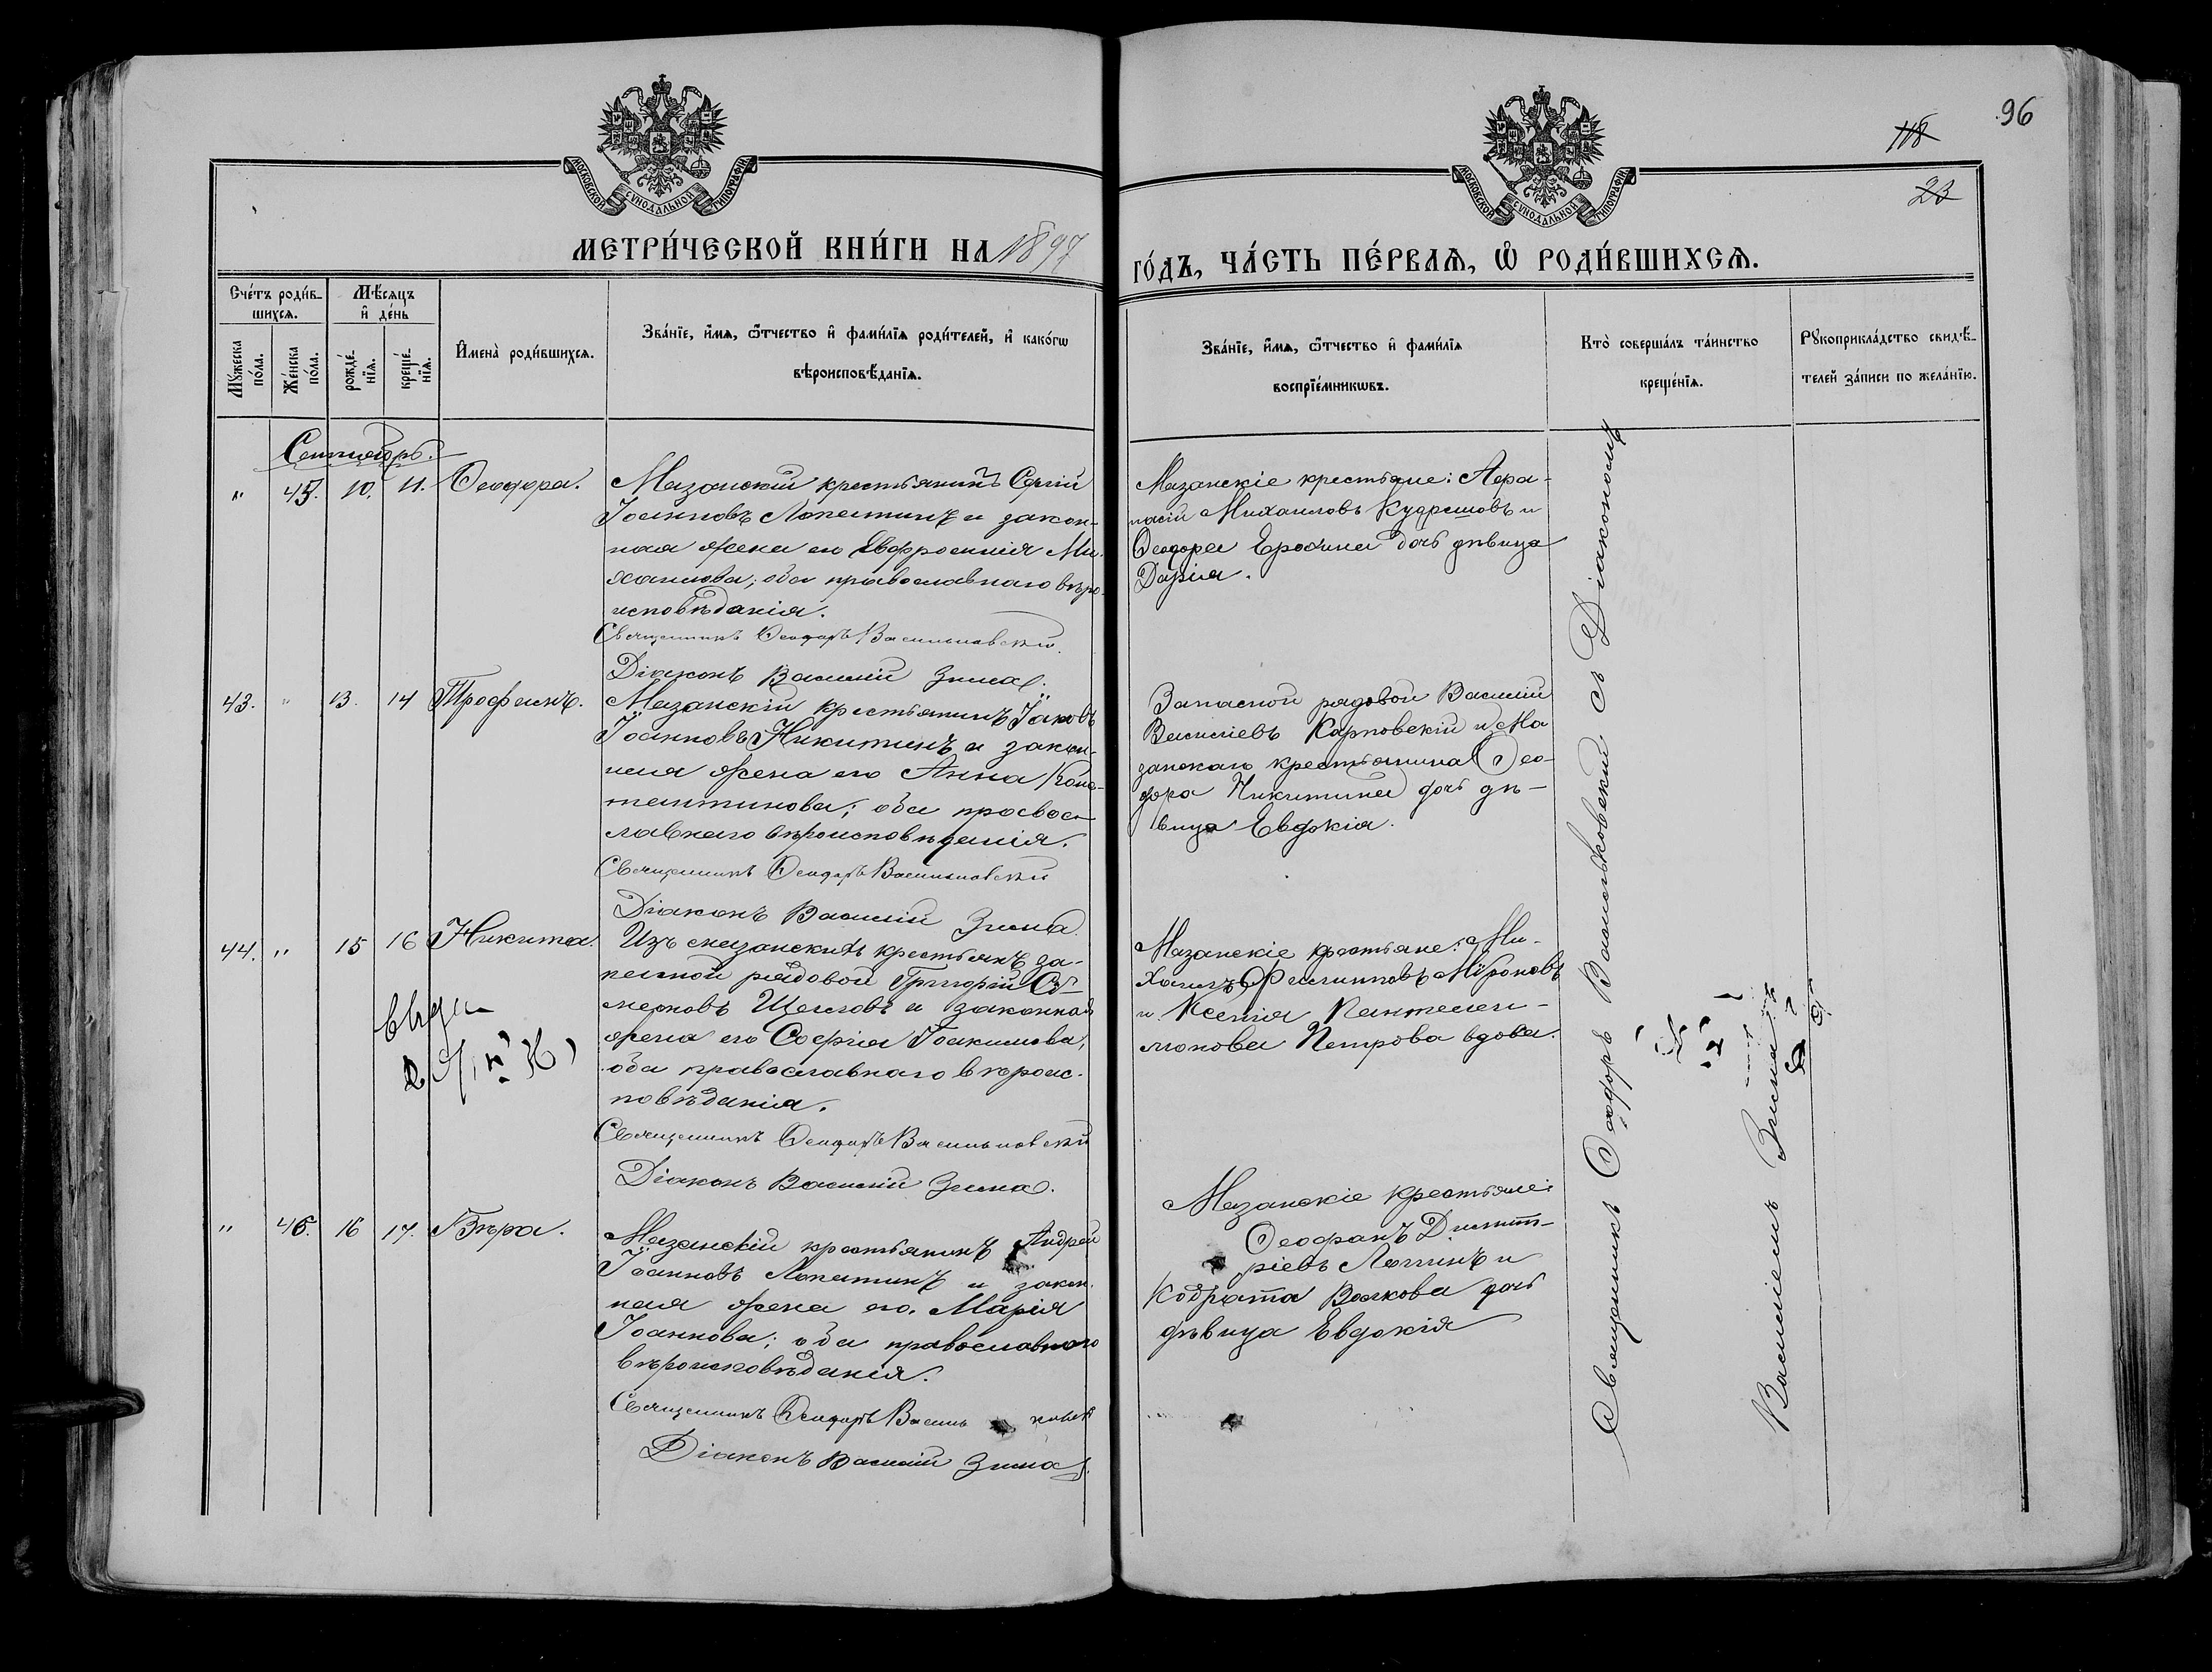 96
118
23
МОСКОВСКОЙ СѴНОДАЛЬНОЙ ТИПОГРАФІИ
МОСКОВСКОЙ СѴНОДАЛЬНОЙ ТИПОГРАФІИ
МЕТРИ́ЧЕСКОЙ КНИ́ГИ НА 1897
ГО́ДЪ, ЧА́СТЬ ПЕ́РВАѦ, Ѡ҆ РОДИ́ВШИХСѦ.
Сче́тъ роди́в-
шихсѧ.
Мѣ́сѧцъ
и҆ де́нь
Мꙋ́жеска
по́ла.
Же́нска
по́ла.
рожде́-
нїѧ.
креще́-
нїѧ.
И҆мена̀ роди́вшихсѧ.
Зва́нїе, и҆́мѧ, ѻ҆́тчество и҆ фами́лїѧ роди́телей, и҆ како́гѡ
вѣроисповѣ́данїѧ.
Зва́нїе, и҆́мѧ, ѻ҆́тчество и҆ фами́лїѧ
воспрїе́мникѡвъ.
Кто̀ соверша́лъ та́инство
креще́нїѧ.
Рꙋкоприкла́дство свидѣ́-
телей за́писи по жела́нїю.
Сентябрь.
" 45. 10. 11. Ѳеодора.
Мазанскій крестьянинъ Сергій
Іоанновъ Лопатинъ и закон-
ная жена его Евфросинія Ми-
хаилова; оба православнаго вѣро-
исповѣданія.
Священникъ Ѳеодоръ Васильковскій.
Діаконъ Василій Зима.
Мазанскіе крестьяне: Афа-
насій Михаиловъ Кудряшовъ и
Ѳеодора Ерохина дочь дѣвица
Дарія.
43. " 13. 14 Трофимъ.
Мазанскій крестьянинъ Іаковъ
Іоанновъ Никитинъ и закон-
ная жена его Анна Конс-
тантинова; оба правос-
лавнаго вѣроисповѣданія.
Священникъ Ѳеодоръ Васильковскій
Діаконъ Василій Зима.
Запасной рядовой Василій
Василіевъ Карповскій и Ма
занскаго крестьянина Ѳео-
дора Никитина дочь дѣ-
вица Евдокія.
44. " 15 16 Никита.
Изъ мазанскихъ крестьянъ за-
пасной рядовой Григорій
Щегловъ и законная
жена его Софія Іоакимова,
оба православнаго вѣроис-
повѣданія.
Священникъ Ѳеодоръ Васильковскій
Діаконъ Василій Зима.
Мазанскіе крестьяне: Ми-
хаилъ Филипповъ Мѵроновъ
и Ксенія Пантелеи-
монова Петрова вдова.
" 46. 16 17. Вѣра.
Мазанскій крестьянинъ Андрей
Іоанновъ Лопатинъ и закон-
ная жена его Марія
Іоаннова; оба православнаго
вѣроисповѣданія.
Священникъ Ѳеодоръ
Діаконъ Василій Зима.
Мазанскіе крестьяне:
Ѳеофанъ Димит-
ріевъ Лотинъ и
Кодрата Волкова дочь
дѣвица Евдокія
Священникъ Ѳеодоръ Васильковскій съ Діакономъ
Василіемъ Зима